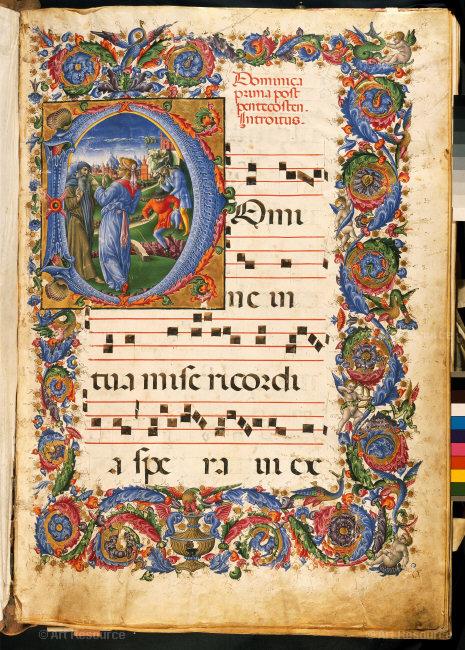 Dominica
prima post
pentecosten.
Introitus.
Domi
ne in
tua mise ricordi
a spe ra ui ex
© Art Resource
© Art Resource